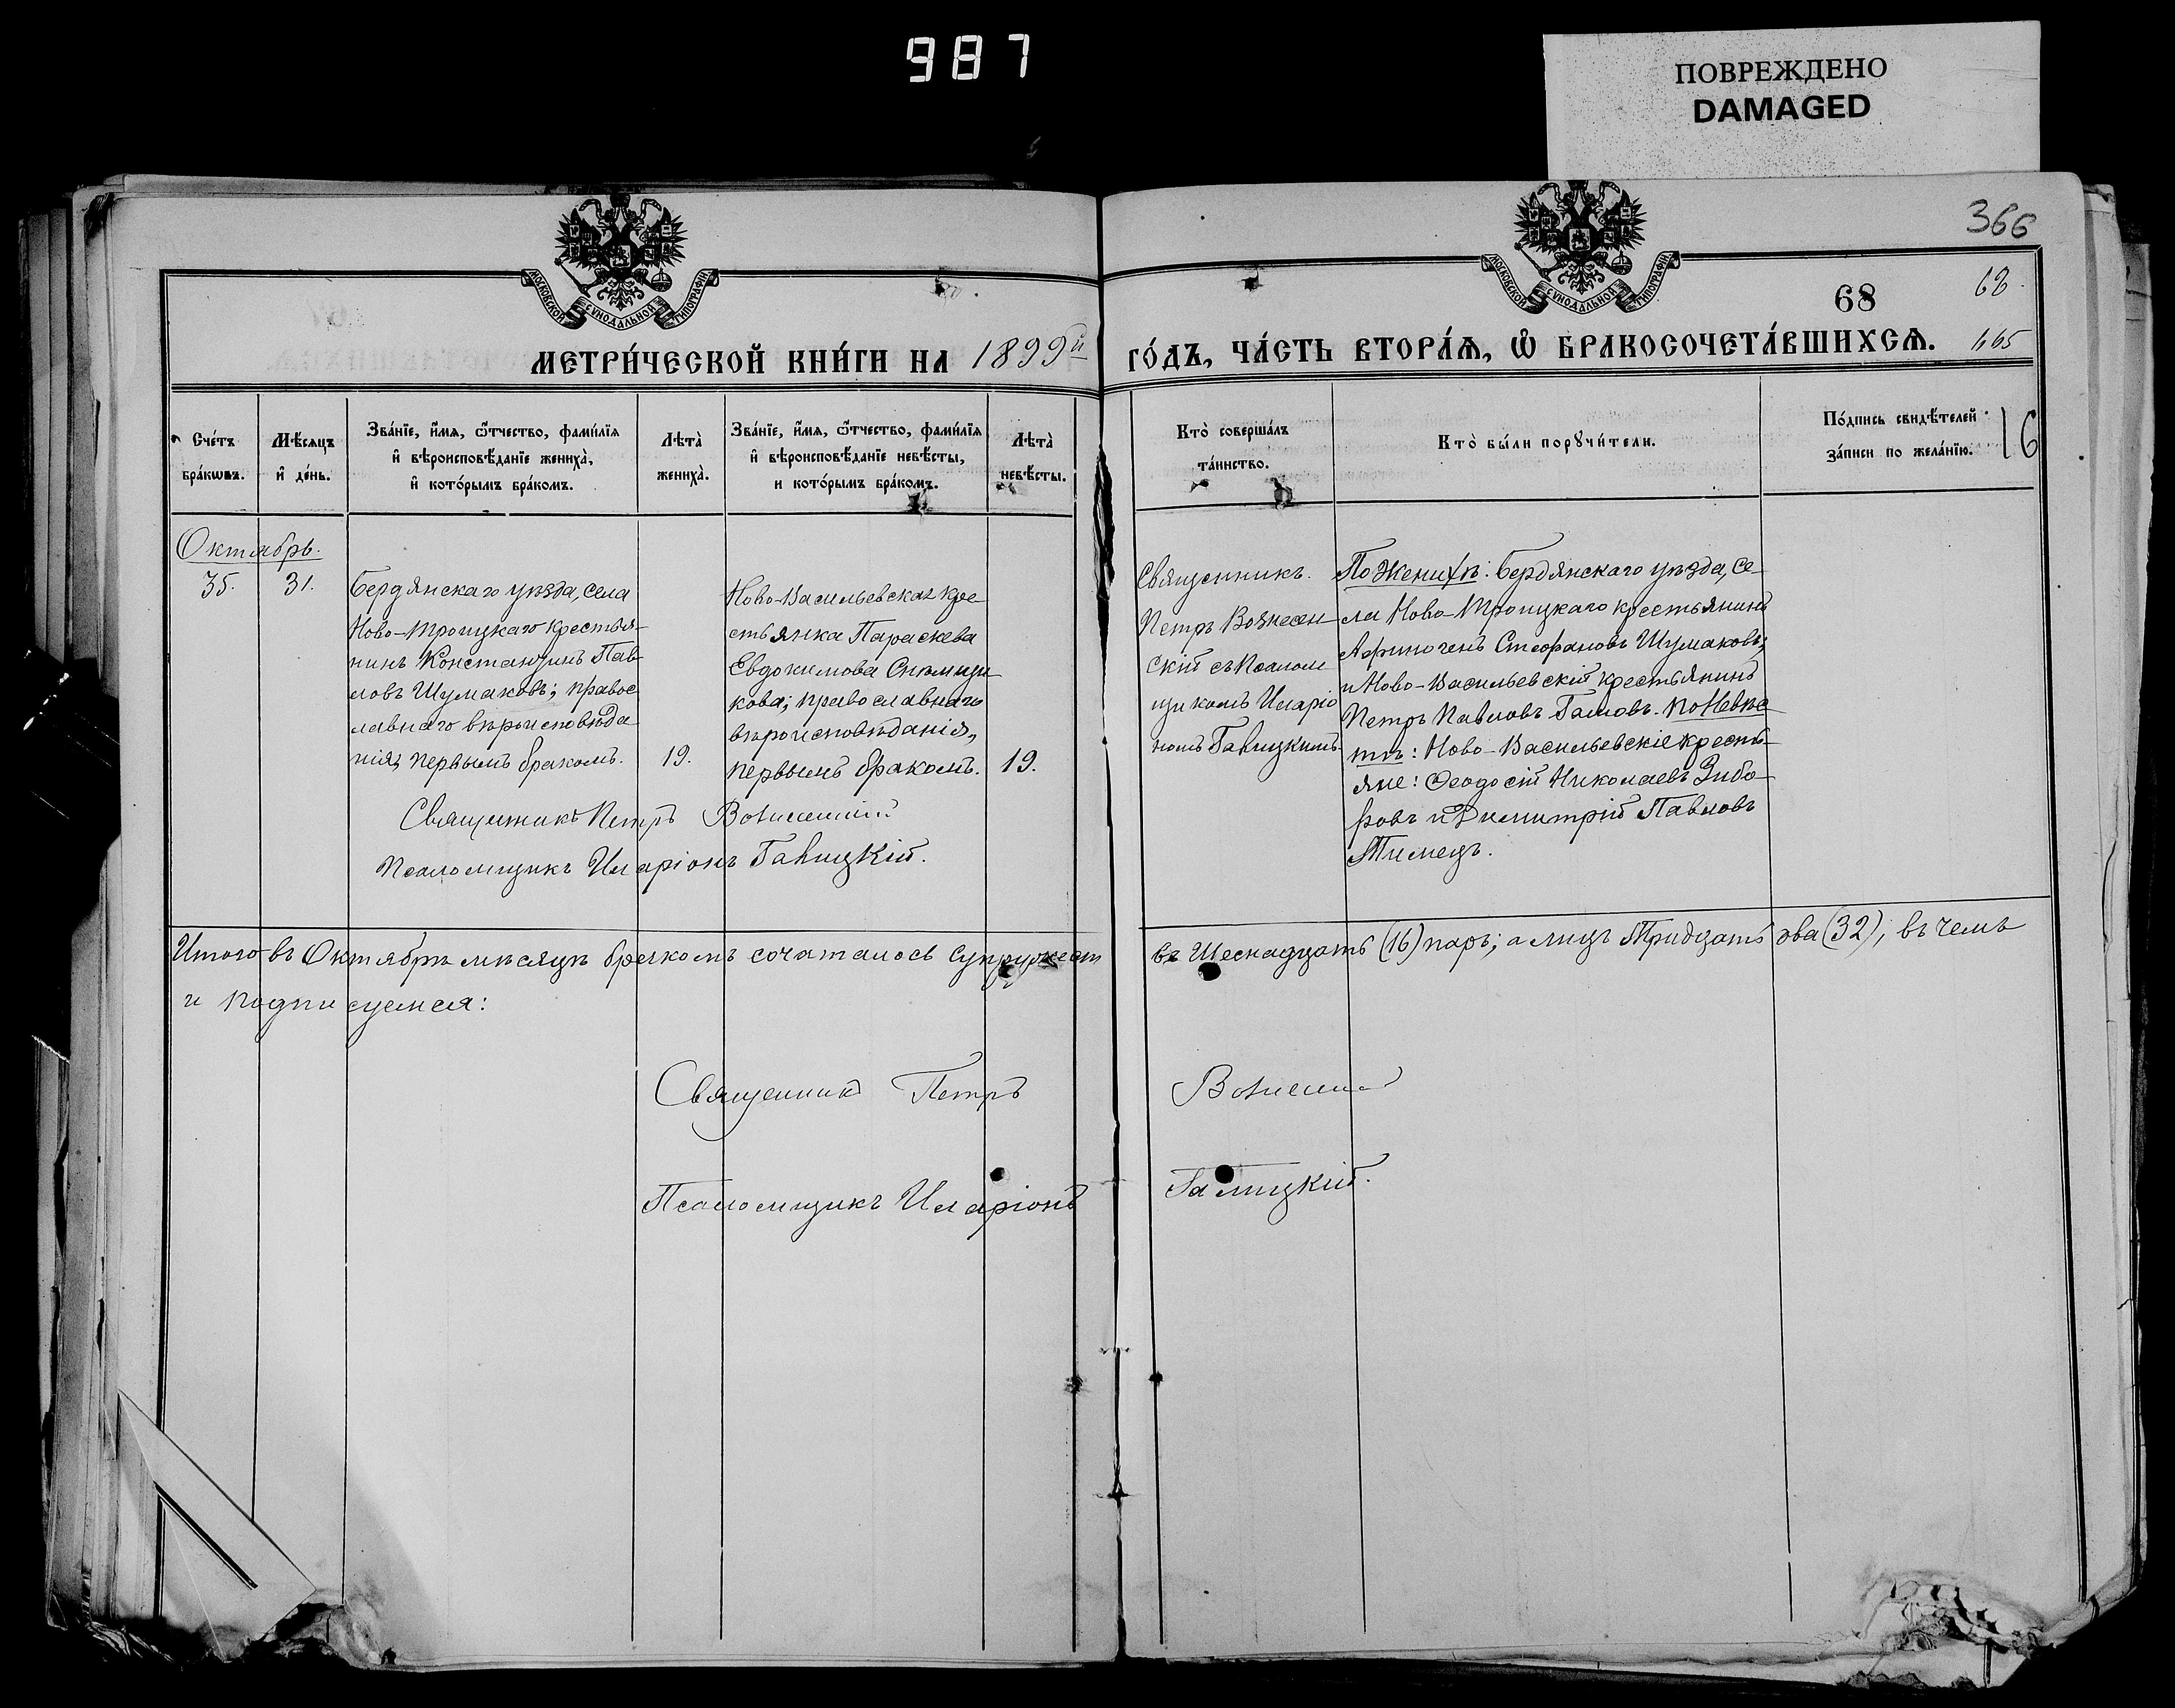 987
ПОВРЕЖДЕНО
DAMAGED
366
МОСКОВСКОЙ СѴНОДАЛЬНОЙ ТИПОГРАФІИ
МОСКОВСКОЙ СѴНОДАЛЬНОЙ ТИПОГРАФІИ
68
68.
МЕТРИ́ЧЕСКОЙ КНИ́ГИ НА 1899й ГО́ДЪ, ЧА́СТЬ ВТОРА́Ѧ, Ѽ БРАКОСОЧЕТА́ВШИХСѦ.
165
Сче́тъ
бра́кѡвъ.
Мѣ́сяцъ
и҆ де́нь.
Зва́нїе, и҆́мя, ѻ҆́тчество, фамилїя
и҆ вѣроисповѣ́данїе жениха̀,
и҆ кото́рымъ бра́комъ.
Лѣта̀
жениха̀.
Зва́нїе, и҆́мя, ѻ҆́тчество, фамилїя
и҆ вѣроисповѣ́данїе невѣ́сты,
и кото́рымъ бра́комъ.
Лѣта̀
невѣ́сты.
Кто̀ соверша́лъ
та́инство.
Кто̀ бы́ли порꙋчи́тели.
По́дпись свидѣ́телей
за́писи по жела́нїю.
16
Октябрь.
35.
31.
Бердянскаго уѣзда, села
Ново-Троицкаго крестья-
нинъ Константинъ Пав-
ловъ Шумаковъ; правос-
лавнаго вѣроисповѣда
нія, первымъ бракомъ.
19.
Ново-Васильевская кре-
стьянка Параскева
Евдокимова
кова; православнаго
вѣроисповѣданія,
первымъ бракомъ.
19.
Священникъ
Петръ Вознесен
скій съ Псалом
щикомъ Иларіо
номъ Галицкимъ.
По Женихѣ: Бердянскаго уѣзда, се-
ла Ново-Троицкаго крестьянинъ
Афиногенъ Стефановъ Шумаковъ;
и Ново-Васильевскій крестьянинъ
Петръ Павловъ По Невѣс
тѣ: Ново-Васильевскіе кресть-
яне: Ѳеодосій Николаевъ Зибо-
ровъ и Димитрій Павловъ
Священникъ Петръ Вознесенскій
Псаломщикъ Иларіонъ Галицкій.
Итого въ Октябрѣ мѣсяцѣ бракомъ сочаталось супружест
въ Шеснадцать (16) паръ; а лицъ Тридцать два (32), въ чемъ
и подписуемся:
Священникъ Петръ Вознесенскій
Псаломщикъ Иларіонъ Галицкій.